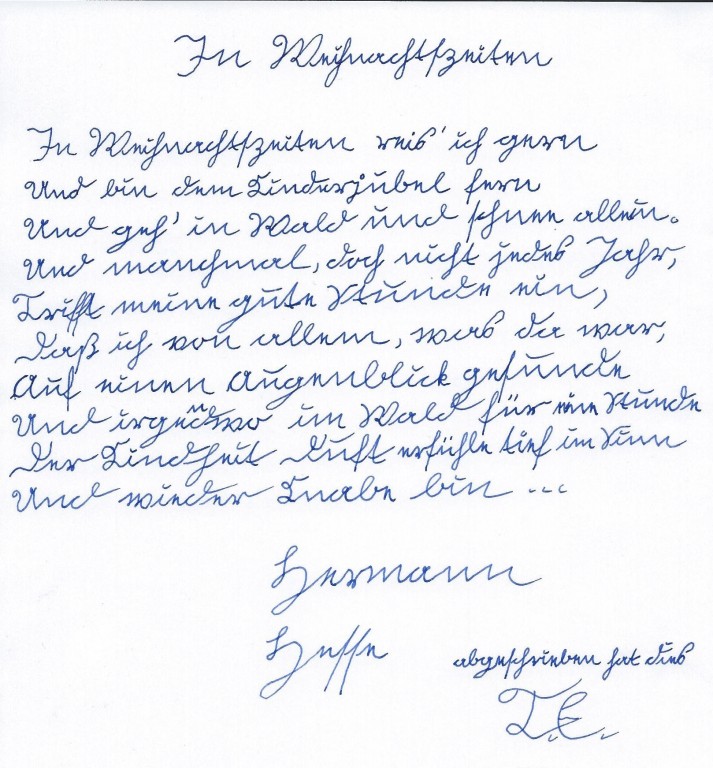 In Weihnachtszeiten
In Weihnachtszeiten reis' ich gern
Und bin dem Kinderjubel fern
Und geh' in Wald und Schnee allein.
Und manchmal, doch nicht jedes Jahr,
Trifft meine gute Stunde ein,
Daß ich von allem, was da war,
Auf einen Augenblick gesunde
Und irgendwo im Wald für eine Stunde
Der Kindheit Duft erfühle tief im Sinn
Und wieder Knabe bin ...
Hermann
Hesse
abgeschrieben hat dies
T.E.